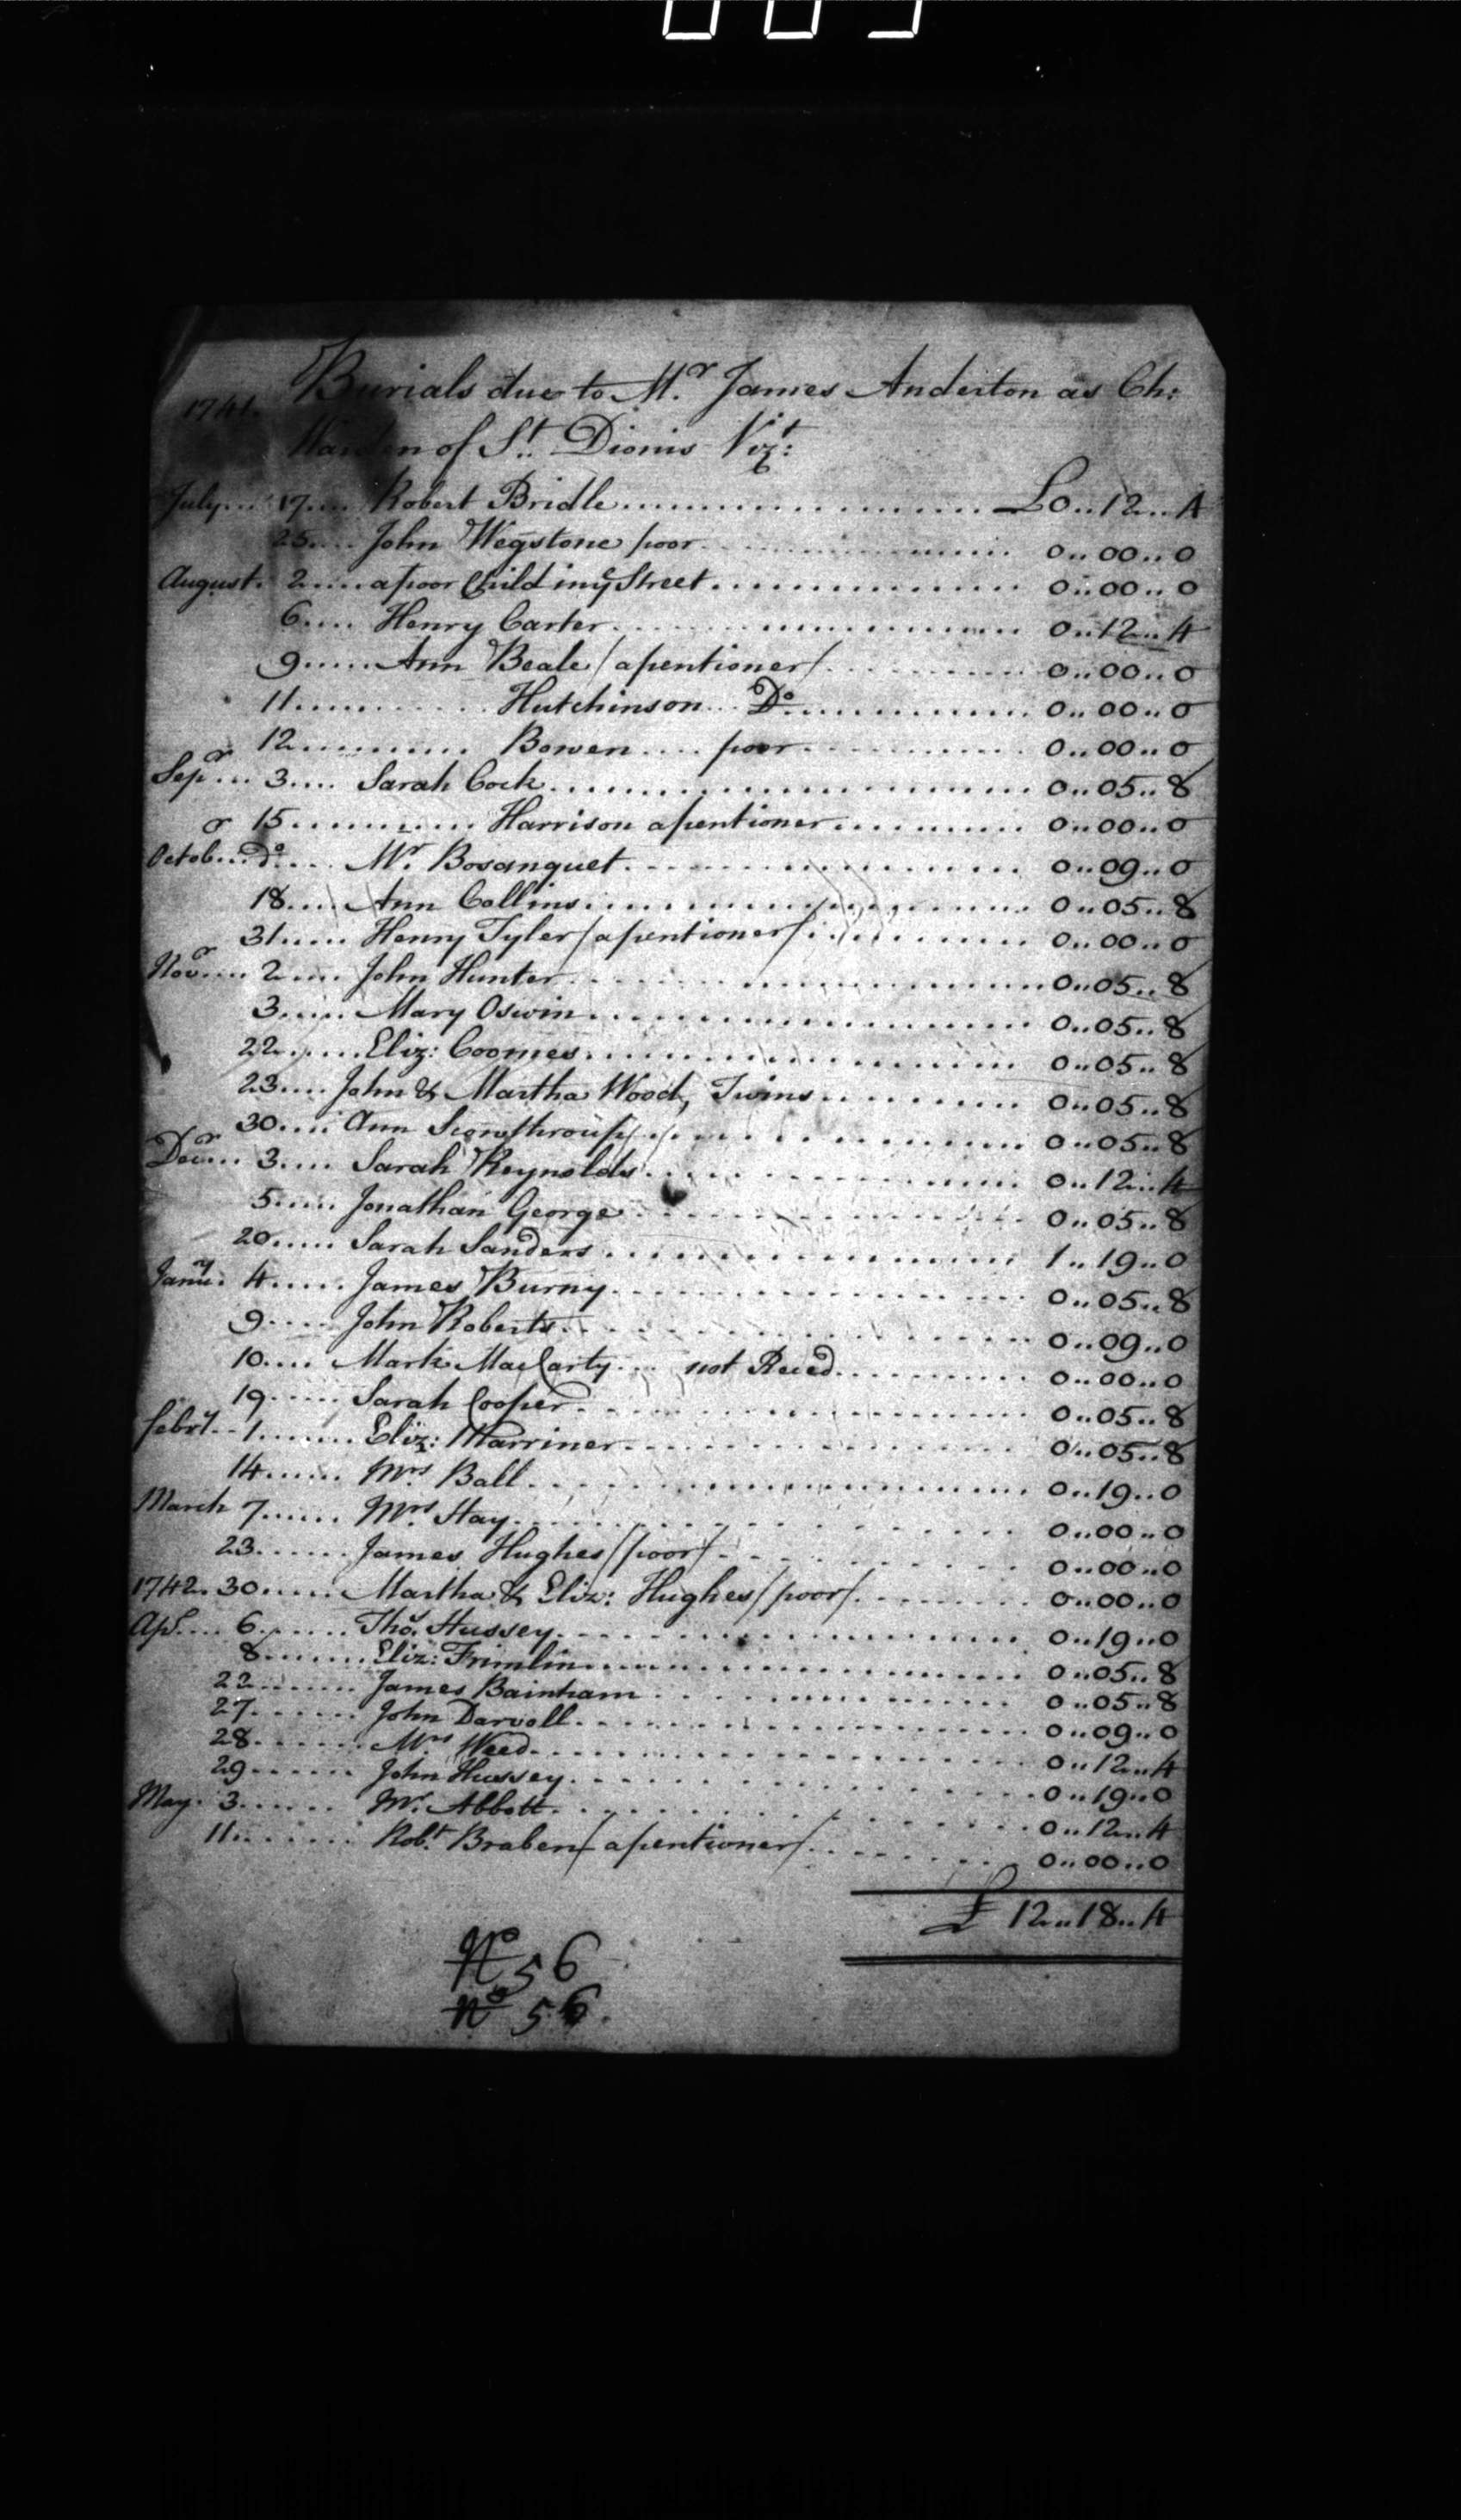 1741. Burials due to Mr. James Anderton as Ch:
Warden of St. Dionis Vizt:
July... 17.... Robert Bridle.................... £0..12..4
25.... John Wegstone poor.................... 0..00..0
August. 2..... a poor Child in ye Street.................... 0..00..0
6.... Henry Carter.................... 0..12..4
9..... Ann Beale/ a pentioner/.................... 0..00..0
11............ Hutchinson... Do.................... 0..00..0
12............ Bowen.... poor.................... 0..00..0
Sepr... 3.... Sarah Cock.................... 0..05..8
15............ Harrison a pentioner.................... 0..00..0
Octobr... Do.... Mr. Bosanquet.................... 0..09..0
18.... Ann Collins.................... 0..05..8
31..... Henry Tyler/ a pentioner/.................... 0..00..0
Novr.... 2.... John Hunter.................... 0..05..8
3..... Mary Oswin.................... 0..05..8
22..... Eliz: Coomes.................... 0..05..8
23.... John & Martha Wood, Twins.................... 0..05..8
30.... Ann.................... 0..05..8
Decr... 3.... Sarah Reynolds.................... 0..12..4
5..... Jonathan George.................... 0..05..8
20..... Sarah Sanders.................... 1..19..0
Janry. 4..... James Burny.................... 0..05..8
9..... John Roberts.................... 0..09..0
10.... Mark MacCarty.... not Reced.................... 0..00..0
19..... Sarah Cooper.................... 0..05..8
Febry.. 1....... Eliz: Marriner.................... 0..05..8
14...... Mrs Ball.................... 0..19..0
March 7...... Mrs Hay.................... 0..00..0
23...... James Hughes/ poor/.................... 0..00..0
1742. 30..... Martha & Eliz: Hughes/ poor/.................... 0..00..0
Apl.... 6...... Thos. Hussey.................... 0..19..0
8....... Eliz: Frimlin.................... 0..05..8
22....... James Bainham.................... 0..05..8
27....... John Darvoll.................... 0..09..0
28....... Mrs Weed.................... 0..12..4
29....... John Hussey.................... 0..19..0
May. 3...... Mr. Abbott.................... 0..12..4
11....... Robt. Braben/ a pentioner/.................... 0..00..0
£ 12..18..4
No 56
No 56.